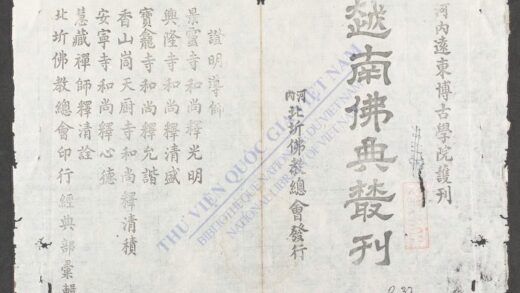 河內遠東博古學院護刊
越南佛典叢刊
河內北圻佛教總會發行
證明導師
景雲寺和尚釋光明
興隆寺和尚釋清盛
寶龕寺和尚釋允諧
香山崗天厨寺和尚釋清積
安寧寺和尚釋心德
慧藏禪師釋清詮
北圻佛教總會印行 經典部彙輯
THƯ VIỆN QUỐC GIA VIỆT NAM
BIBLIOTHEQUE NATIONALE DU VIETNAM
NATIONAL LIBRARY OF VIETNAM